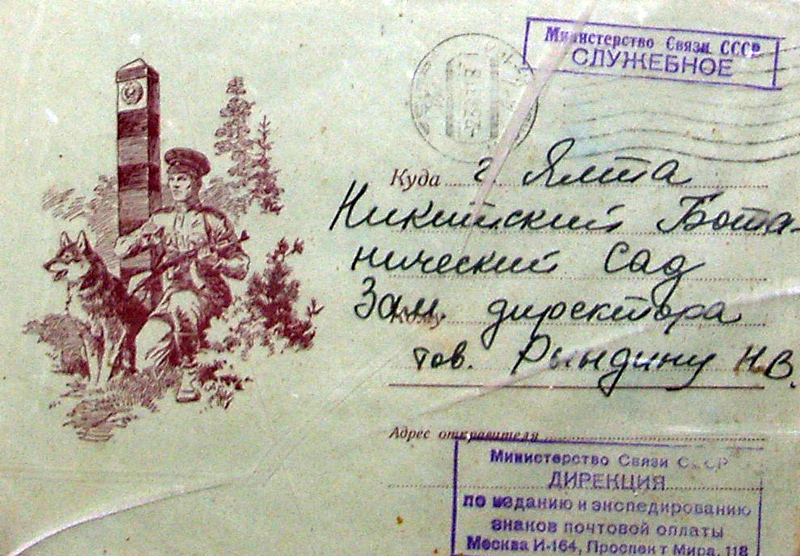 Министерство Связи СССР
СЛУЖЕБНОЕ
Куда г Ялта
Никитский Бота-
нический Сад
Кому Зам. директора
тов. Рындину Н.В.
Адрес отправителя
Министерство Связи СССР
ДИРЕКЦИЯ
по изданию и экспедированию
знаков почтовой оплаты
Москва И-164, Проспект Мира, 118